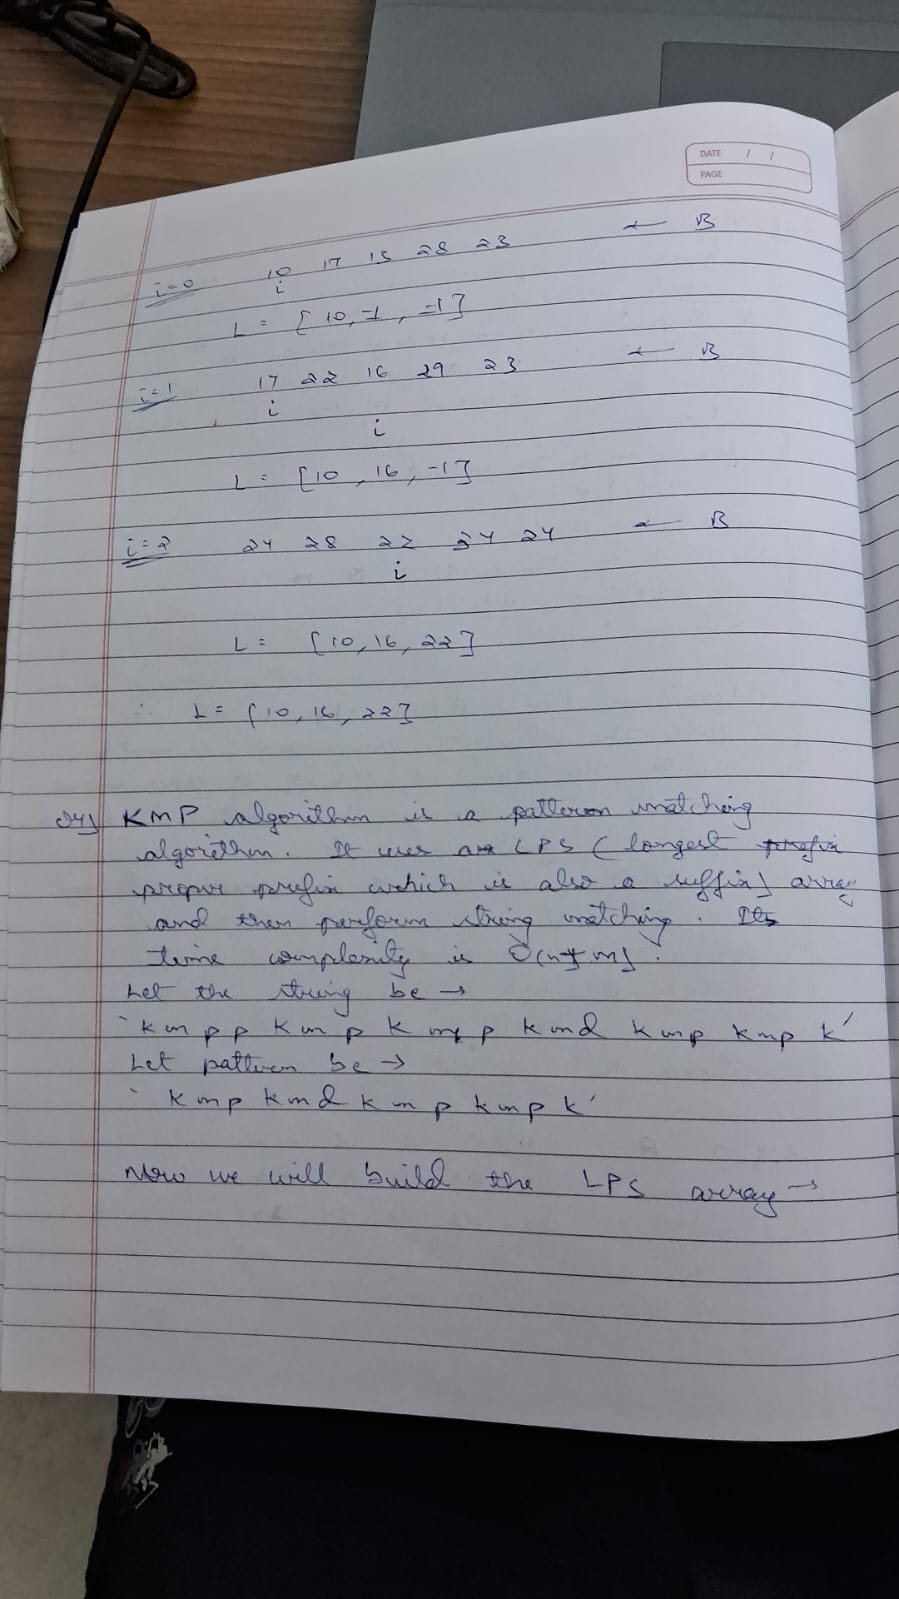 DATE / /
PAGE
i=0 10 17 15 28 23 ← B
i
L = [10, -1, -1]
i=1 17 22 16 29 23 ← B
i
i
L = [10, 16, -1]
i=2 24 28 22 34 24 ← B
i
L = [10, 16, 22]
∴ L = [10, 16, 22]
KMP algorithm is a pattern matching
algorithm. It uses LPS (longest prefix
proper prefix which is also a suffix) array
and then perform string matching. Its
time complexity is O(n+m).
Let the string be →
'kmpp kmp kmp kmd kmp kmp k'
Let pattern be →
'kmp kmd kmp kmp k'
Now we will build the LPS array →